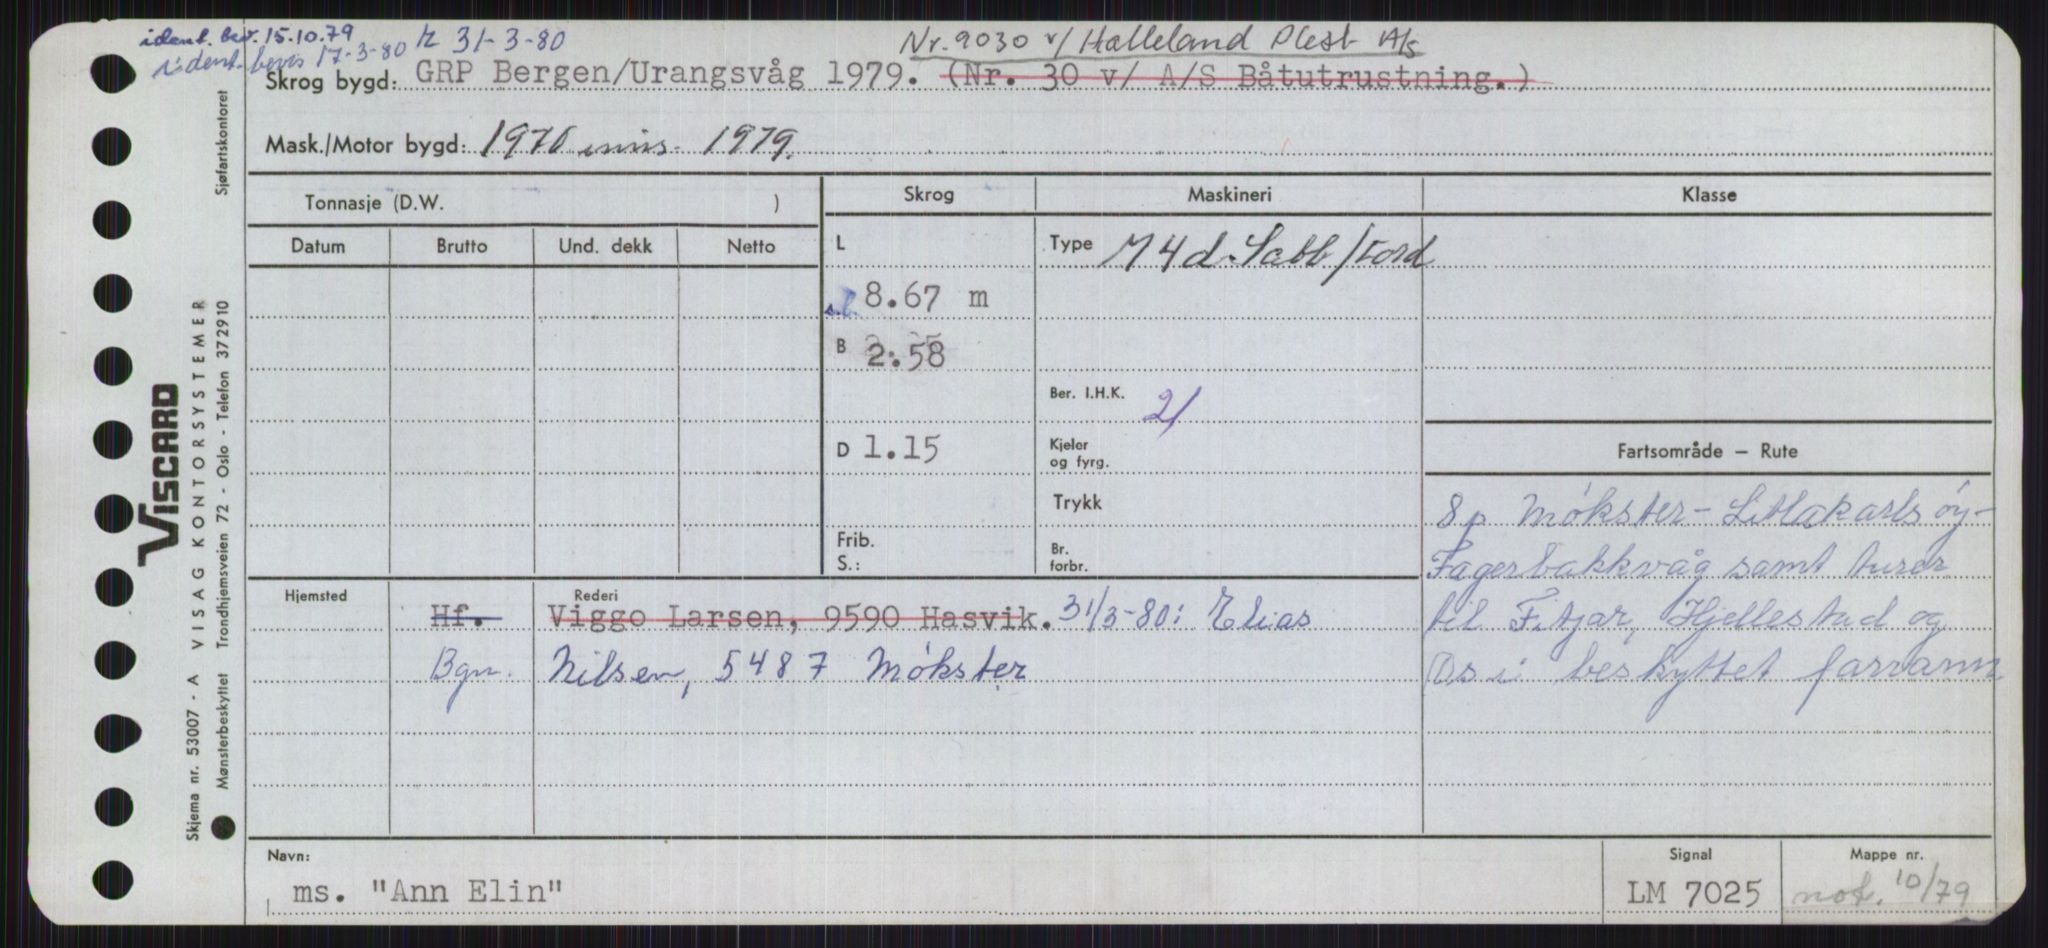 ident. bev. 15.10.79
ident. bevis 17-3-80 R 31-3-80
Nr. 9030 v/ Halleland Plest A/s
Skrog bygd: GRP Bergen/Urangsvåg 1979. (Nr. 30 v/ A/S Båtutrustning.)
Mask./Motor bygd: 1970 inns. 1979.
Tonnasje (D.W. )
Skrog
Maskineri
Klasse
Datum
Brutto
Und. dekk
Netto
L
8.67 m
B
2.58
D 1.15
Frib.
S.:
Type M 4 d. Sabb/Ford
Ber. I.H.K. 21
Kjeler
og fyrg.
Trykk
Br.
forbr.
Fartsområde — Rute
8 p Møkster - Litlakarlsøy -
Fagerbakkvåg samt turer
til Fitjar, Hjellestad og
Os i beskyttet farvann
Hjemsted
Rederi
Hf. Viggo Larsen, 9590 Hasvik. 31/3-80: Elias
Bgn. Nilsen, 5487 Møkster
Navn:
ms. "Ann Elin"
Signal
LM 7025
Mappe nr.
not. 10/79
Sjøfartskontoret
VISCARD
VISAG KONTORSYSTEMER
Trondhjemsveien 72 - Oslo - Telefon 372910
Skjema nr. 53007 - A
Mønsterbeskyttet